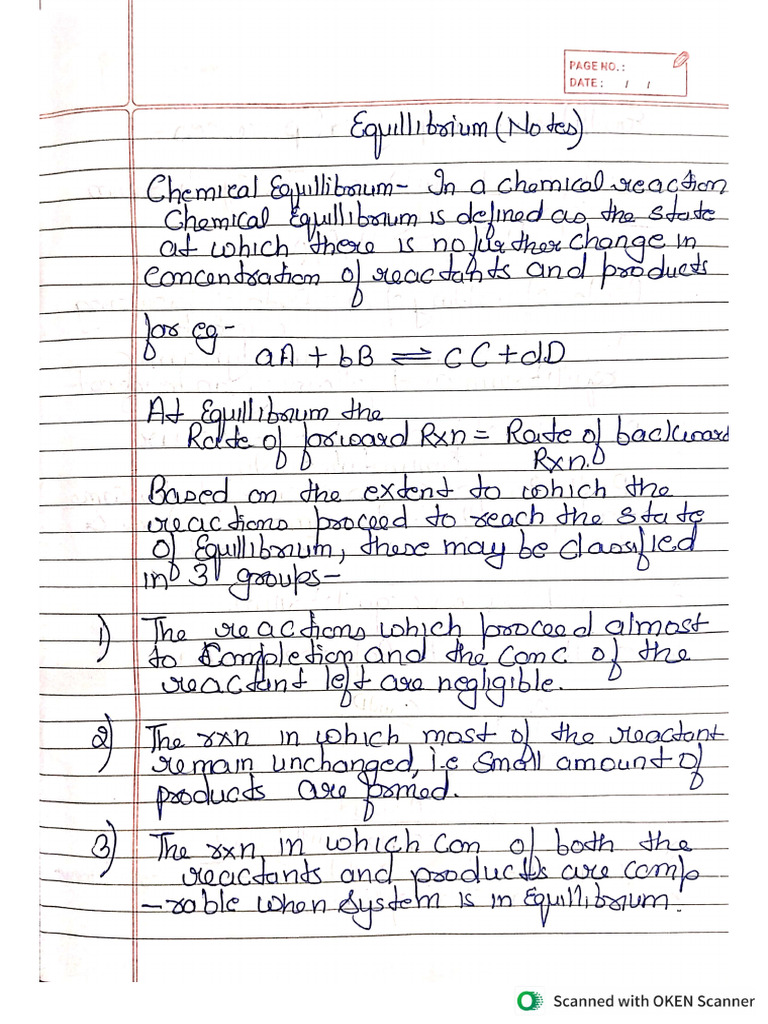 PAGE NO.:
DATE: / /
Equillibrium (Notes)
Chemical Equillibrium- In a chemical reaction
Chemical Equillibrium is defined as the state
at which there is no further change in
concentration of reactants and products
for eg-
aA + bB ⇌ cC + dD
At Equillibrium the
Rate of forward Rxn = Rate of backward
Rxn.
Based on the extent to which the
reactions proceed to reach the state
of Equillibrium, these may be classified
in 3 groups-
1) The reactions which proceed almost
to Completion and the conc of the
reactant left are negligible.
2) The rxn in which most of the reactant
remain unchanged, i.e small amount of
products are formed.
3) The rxn in which Con of both the
reactants and products are comp
-rable when system is in Equillibrium.
Scanned with OKEN Scanner